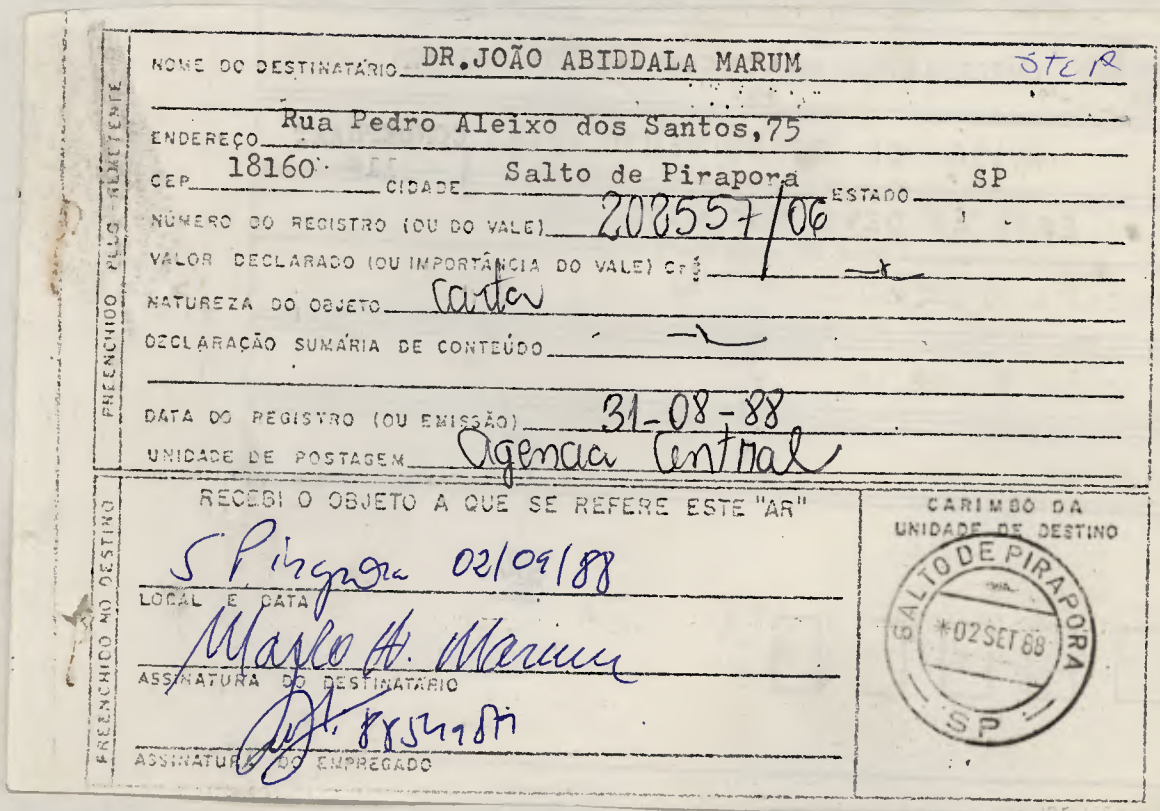 PREENCHIDO PELO REMETENTE
NOME DO DESTINATÁRIO DR.JOÃO ABIDDALA MARUM
ENDEREÇO Rua Pedro Aleixo dos Santos,75
CEP 18160 CIDADE Salto de Pirapora ESTADO SP
NÚMERO DO REGISTRO (OU DO VALE) 202557/06
VALOR DECLARADO (OU IMPORTÂNCIA DO VALE) Cr$
NATUREZA DO OBJETO Carta
DECLARAÇÃO SUMÁRIA DE CONTEÚDO
DATA DO REGISTRO (OU EMISSÃO) 31-08-88
UNIDADE DE POSTAGEM Agencia Central
PREENCHIDO NO DESTINO
RECEBI O OBJETO A QUE SE REFERE ESTE "AR"
S Pirapora 02/09/88
LOCAL E DATA
Marco A. Marum
ASSINATURA DO DESTINATÁRIO
ASSINATURA DO EMPREGADO
CARIMBO DA
UNIDADE DE DESTINO
SALTO DE PIRAPORA
*02 SET 88
SP